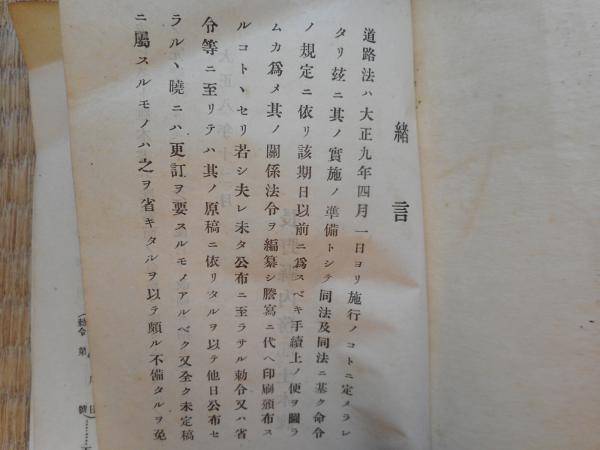 緒言
道路法ハ大正九年四月一日ヨリ施行ノコトニ定メラレ
タリ玆ニ其ノ實施ノ準備トシテ同法及同法ニ基ク命令
ノ規定ニ依リ該期日以前ニ爲スベキ手續上ノ便ヲ圖ラ
ムカ爲メ其ノ關係法令ヲ編纂シ謄寫ニ代ヘ印刷頒布ス
ルコトヽセリ若シ夫レ未タ公布ニ至ラサル勅令又ハ省
令等ニ至リテハ其ノ原稿ニ依リタルヲ以テ他日公布セ
ラルヽ曉ニハ更訂ヲ要スルモノアルベク又全ク未定稿
ニ屬スルモノハ之ヲ省キタルヲ以テ頗ル不備タルヲ免
(勅令第 號)
月 日